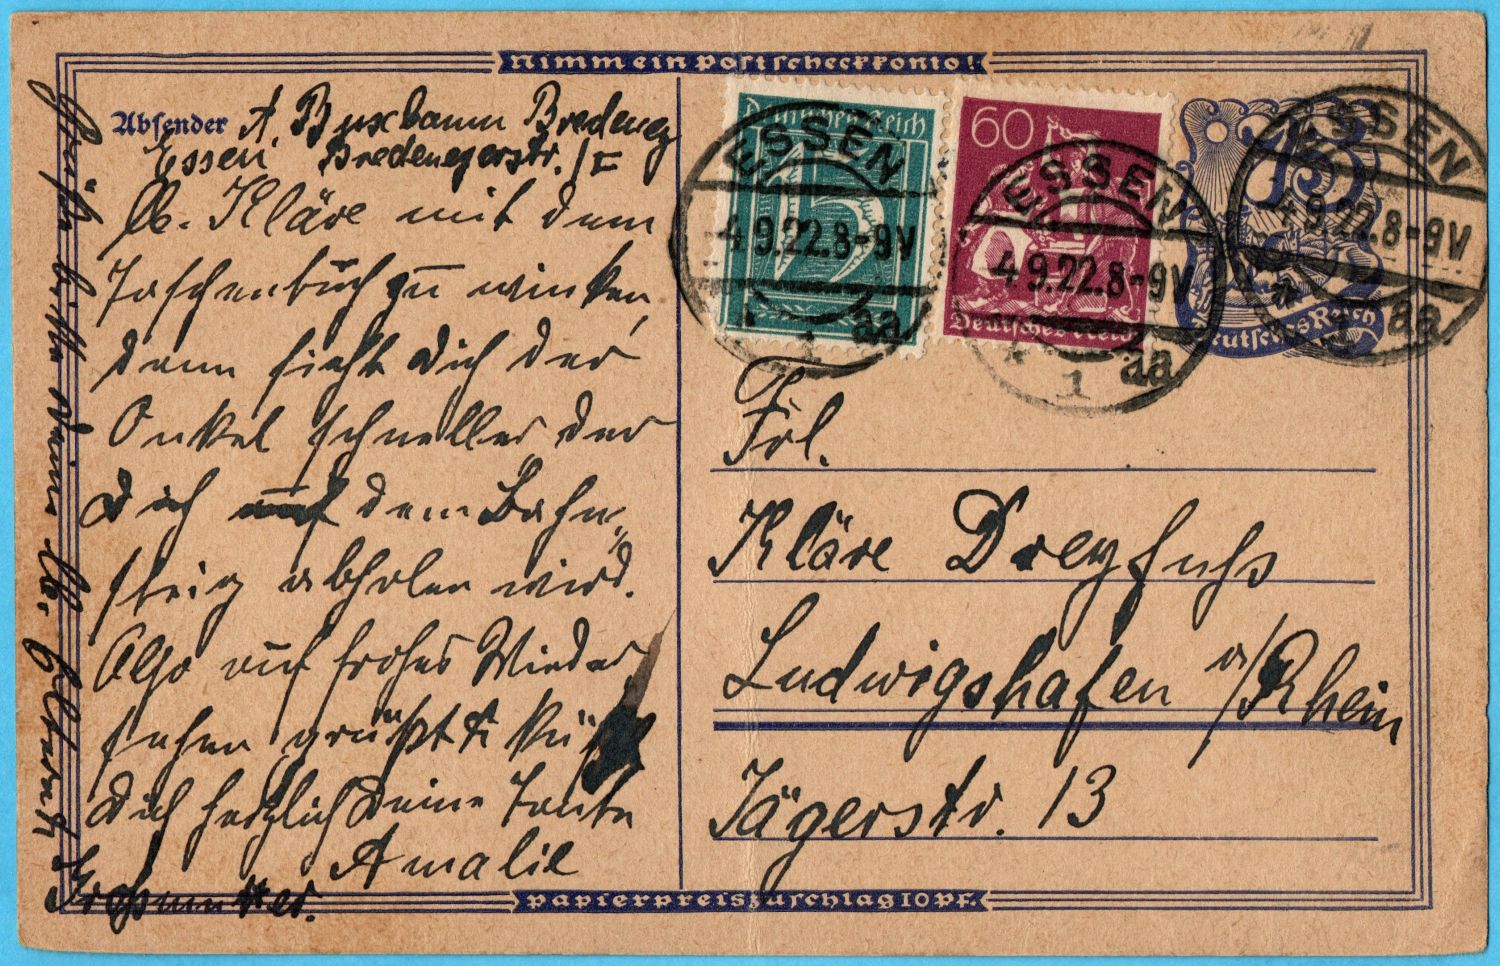 Nimm ein Postscheckkonto!
Absender A. Buxbaum Bredeney
Essen, Bredeneyerstr.
lb. Kläre mit dem
Taschentuch zu winken,
denn sieht Dich der
Onkel schneller, der
Dich auf dem Bahn-
steig abholen wird.
Also auf frohes Wieder
sehen grüßt & küßt
Dich herzlich Deine Tante
Amalie
Grüße bitte Deine lb. Eltern &
Großmutter.
Deutsches Reich
75
60
Deutsches Reich
Deutsches Reich
ESSEN
4.9.22.8-9V
* 1 aa
ESSEN
4.9.22.8-9V
* 1 aa
ESSEN
4.9.22.8-9V
* 1 aa
Frl.
Kläre Dreyfuss
Ludwigshafen a/Rhein
Jägerstr. 13
Papierpreiszuschlag 10 PF.